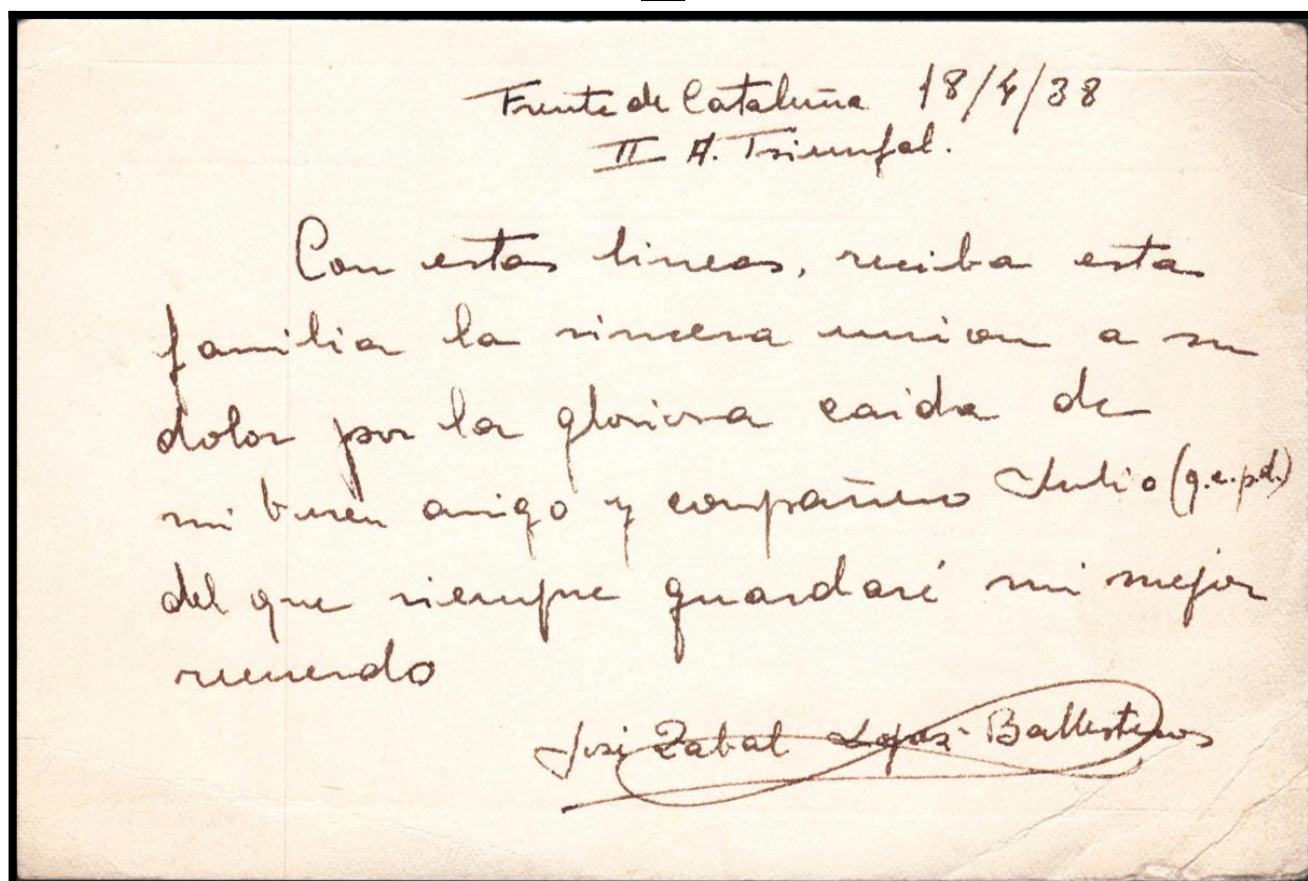 Frente de Cataluña 18/4/38
II A. Triunfal.
Con estas lineas, reciba esta
familia la sincera union a su
dolor por la gloriosa caida de
mi buen amigo y compañero Julio (q.e.p.d.)
del que siempre guardaré mi mejor
recuerdo
José Zabal Lopez-Ballesteros